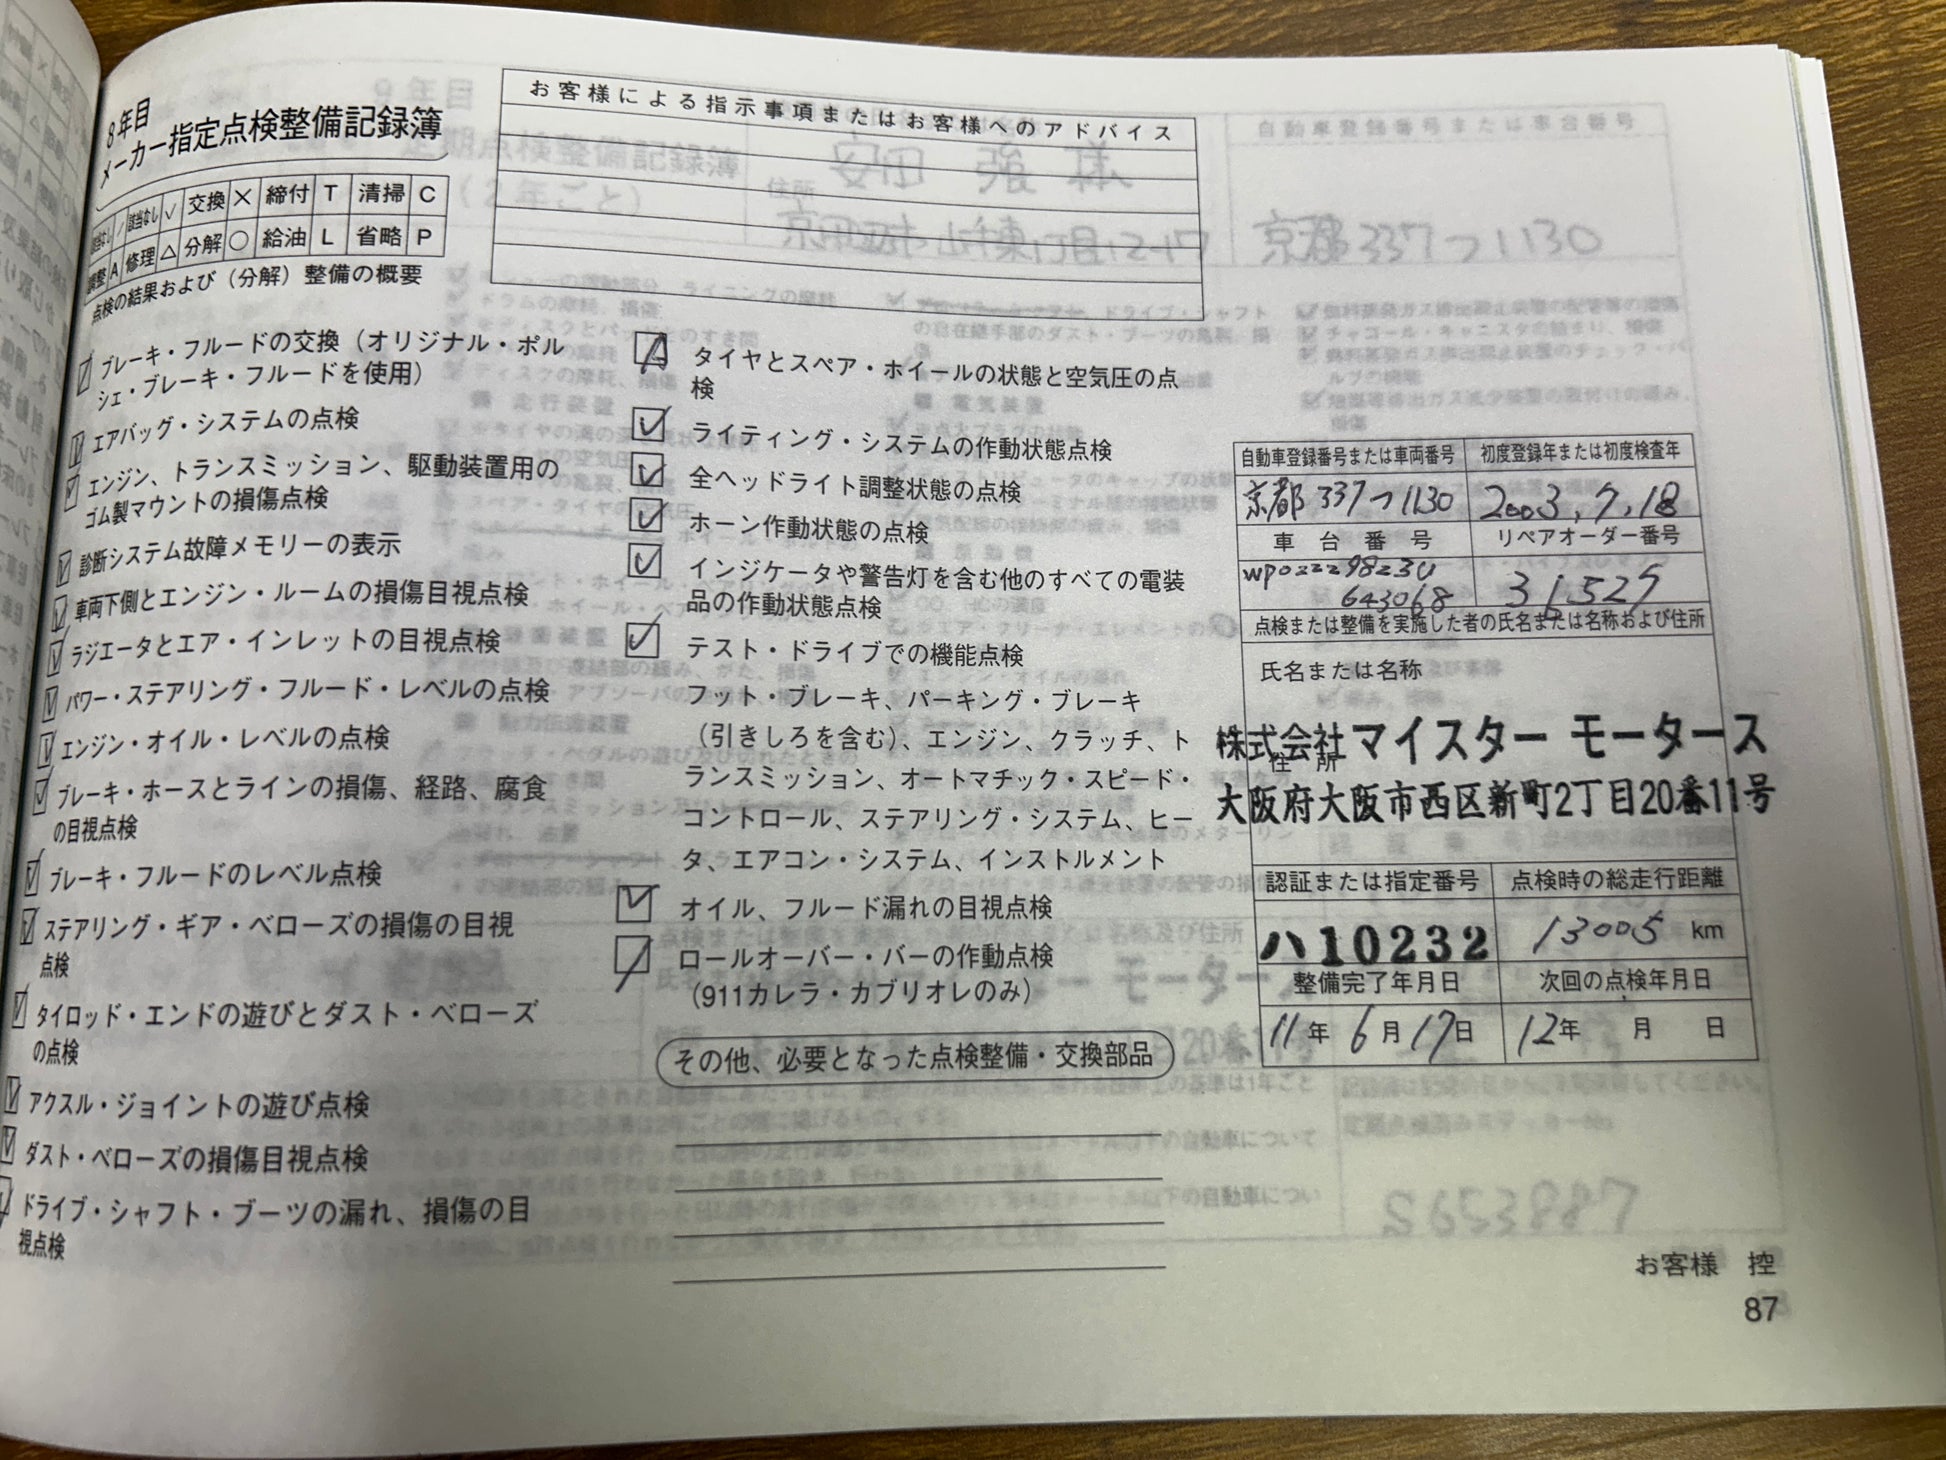 8年目
メーカー指定点検整備記録簿
該当なし / 該当なし ✓ 交換 × 締付 T 清掃 C
調整 A 修理 △ 分解 ○ 給油 L 省略 P
点検の結果および（分解）整備の概要
ブレーキ・フルードの交換（オリジナル・ポル
シェ・ブレーキ・フルードを使用）
エアバッグ・システムの点検
エンジン、トランスミッション、駆動装置用の
ゴム製マウントの損傷点検
診断システム故障メモリーの表示
車両下側とエンジン・ルームの損傷目視点検
ラジエータとエア・インレットの目視点検
パワー・ステアリング・フルード・レベルの点検
エンジン・オイル・レベルの点検
ブレーキ・ホースとラインの損傷、経路、腐食
の目視点検
ブレーキ・フルードのレベル点検
ステアリング・ギア・ベローズの損傷の目視
点検
タイロッド・エンドの遊びとダスト・ベローズ
の点検
アクスル・ジョイントの遊び点検
ダスト・ベローズの損傷目視点検
ドライブ・シャフト・ブーツの漏れ、損傷の目
視点検
お客様による指示事項またはお客様へのアドバイス
タイヤとスペア・ホイールの状態と空気圧の点
検
ライティング・システムの作動状態点検
全ヘッドライト調整状態の点検
ホーン作動状態の点検
インジケータや警告灯を含む他のすべての電装
品の作動状態点検
テスト・ドライブでの機能点検
フット・ブレーキ、パーキング・ブレーキ
（引きしろを含む）、エンジン、クラッチ、ト
ランスミッション、オートマチック・スピード・
コントロール、ステアリング・システム、ヒー
タ、エアコン・システム、インストルメント
オイル、フルード漏れの目視点検
ロールオーバー・バーの作動点検
（911カレラ・カブリオレのみ）
その他、必要となった点検整備・交換部品
自動車登録番号または車両番号 初度登録年または初度検査年
京都337つ1130 2003.7.18
車台番号 リペアオーダー番号
WP0ZZZ98Z3U
643068
点検または整備を実施した者の氏名または名称および住所
氏名または名称
株式会社マイスター モータース
住所
大阪府大阪市西区新町2丁目20番11号
認証または指定番号 点検時の総走行距離
ハ10232 13005 km
整備完了年月日 次回の点検年月日
11年 6月17日 12年 月 日
お客様 控
87